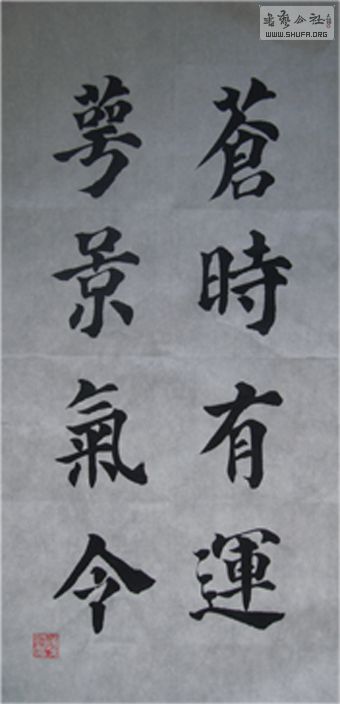 蒼時有運
萼景氣令
書藝公社
WWW.SHUFA.ORG